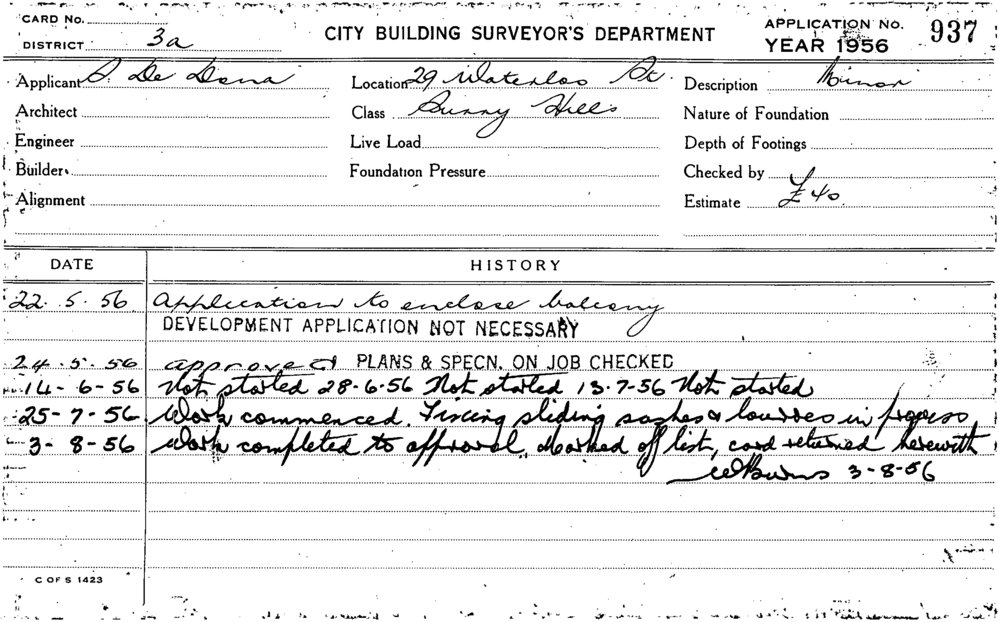 CARD No.
DISTRICT 3a
CITY BUILDING SURVEYOR'S DEPARTMENT
APPLICATION No. 937
YEAR 1956
Applicant De Dona
Location 29 Waterloo St
Description Minor
Architect
Class Surry Hills
Nature of Foundation
Engineer
Live Load
Depth of Footings
Builder
Foundation Pressure
Checked by
Alignment
Estimate £40
DATE HISTORY
22. 5. 56 Application to enclose balcony
DEVELOPMENT APPLICATION NOT NECESSARY
24-5-56 approved PLANS & SPECN. ON JOB CHECKED
14-6-56 Not started 28-6-56 Not started 13-7-56 Not started
25-7-56 Work commenced. Fixing sliding sashes & louvres in progress
3-8-56 Work completed to approval. Marked off list, card returned herewith
WBurns 3-8-56
C OF S 1423